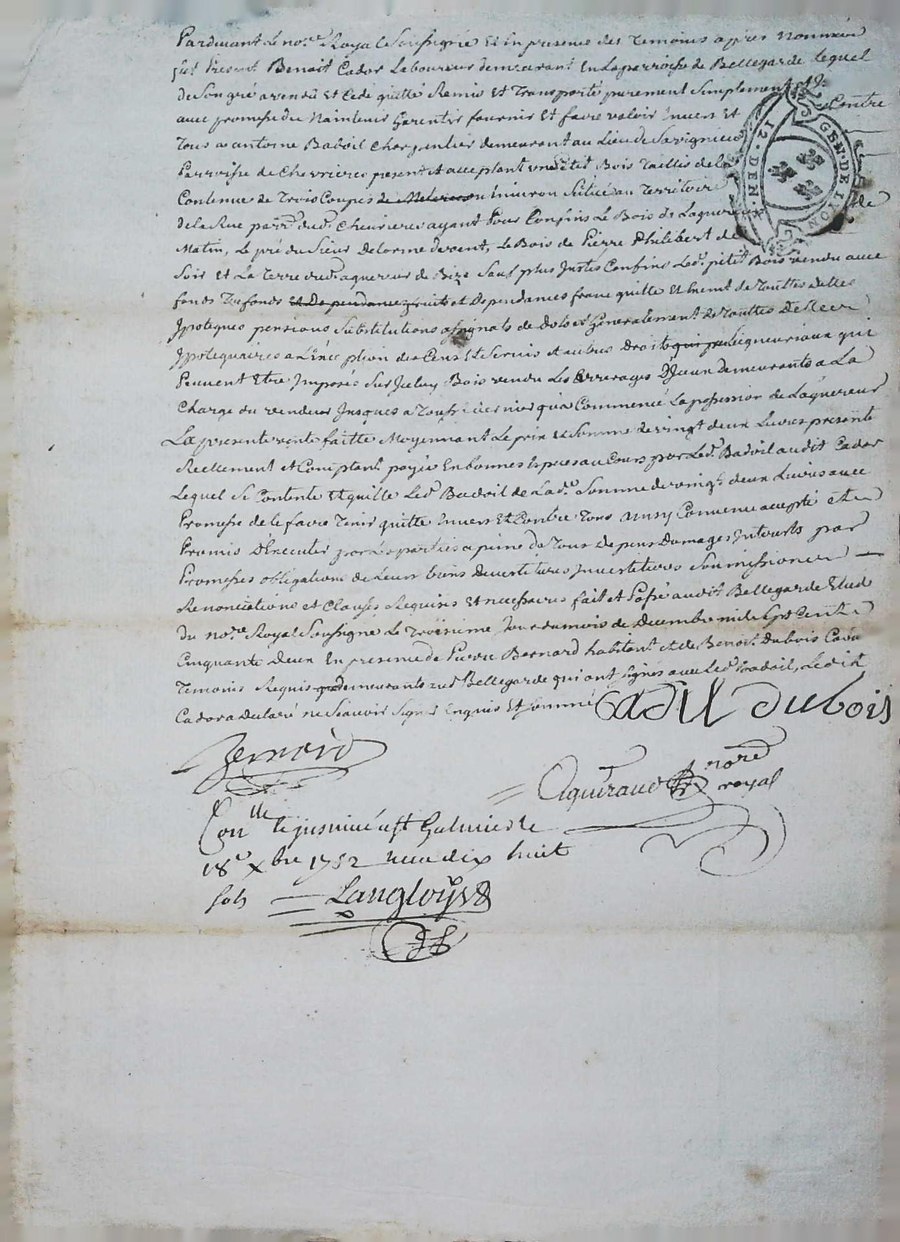 Pardevant Le no.re Royal Soussigné Et En presence des Temoins apres Nommés
fut Present Benoit Cador Laboureur demeurant En La parroisse de Bellegarde Lequel
de Son gré a vendu Et Cede quitté Remis Et Transporté purement Simplement
avec promesse de Maintenir Garentir fournir Et faire valoir Envers Et Contre
Tous a antoine Badoil Charpentier demeurant au Lieu de Savigneu
Parroisse de Chevrieres present et acceptant un petit Bois Taillis de La
Contenue de Trois Coupes ou Environ Situé au Territoire
de la Rue parr.e dud. Chevrieres ayant Pour Confins Le Bois de Laquereur de
Matin, Le pré du Sieur Delorme de vent, Le Bois de Pierre Philibert de
Soir et La Terre dud. aquereur de Bize Sauf plus Justes Confins Led. petit Bois vendu avec
fonds Trefonds et Dependances franc quitte Et Exempt de Touttes Dettes
Ypoteques pensions Substitutions assignats de Dots et Generalement de Touttes Dettes
Ypotequaires a L'Exception des Cens Et Servis et autres Droits Seigneuriaux qui
Peuvent Etre Imposés Sur Iceluy Bois vendu Les arrerages D'Iceux demeurants a La
Charge du vendeur Jusques a Toussts dernier qu'a Commencé La possession de Laquereur
La presente vente faitte Moyennant Le prix Et Somme de vingt deux Livres presente
Reellement et Comptant payée En bonnes Especes au Cours par Led. Badoil audit Cador
Lequel Se Contente Et quitte Led. Badoil de Lad. Somme de vingt deux Livres avec
Promesse de le faire Tenir quitte Envers Et Contre Tous ainsy Convenu accepté et
Promis D'Executer par Les parties a peine de Tous Depens Dommages Interets par
Promesses obligations de Leurs biens Devestitures Investitures Soumissions
Renonciations et Clauses Requises Et necessaires fait et Passé audit Bellegarde Etude
du no.re Royal Soussigné Le Troisieme Jour du mois de Decembre mil Sept Cent
Cinquante Deux En presence de Pierre Bernard habitant et de Benoit Dubois
Temoins Requis demeurants aud. Bellegarde qui ont Signés avec Led. Badoil, Ledit
Cador a declaré ne Scavoir Signer Enquis Et Sommé
Badoil dubois
Bernard
no.re
royal
Con.lle et insinué a St Galmier le
18.e Xbre 1752 Recu dix huit
sols Langloys
GEN. DE LION
12. DEN.